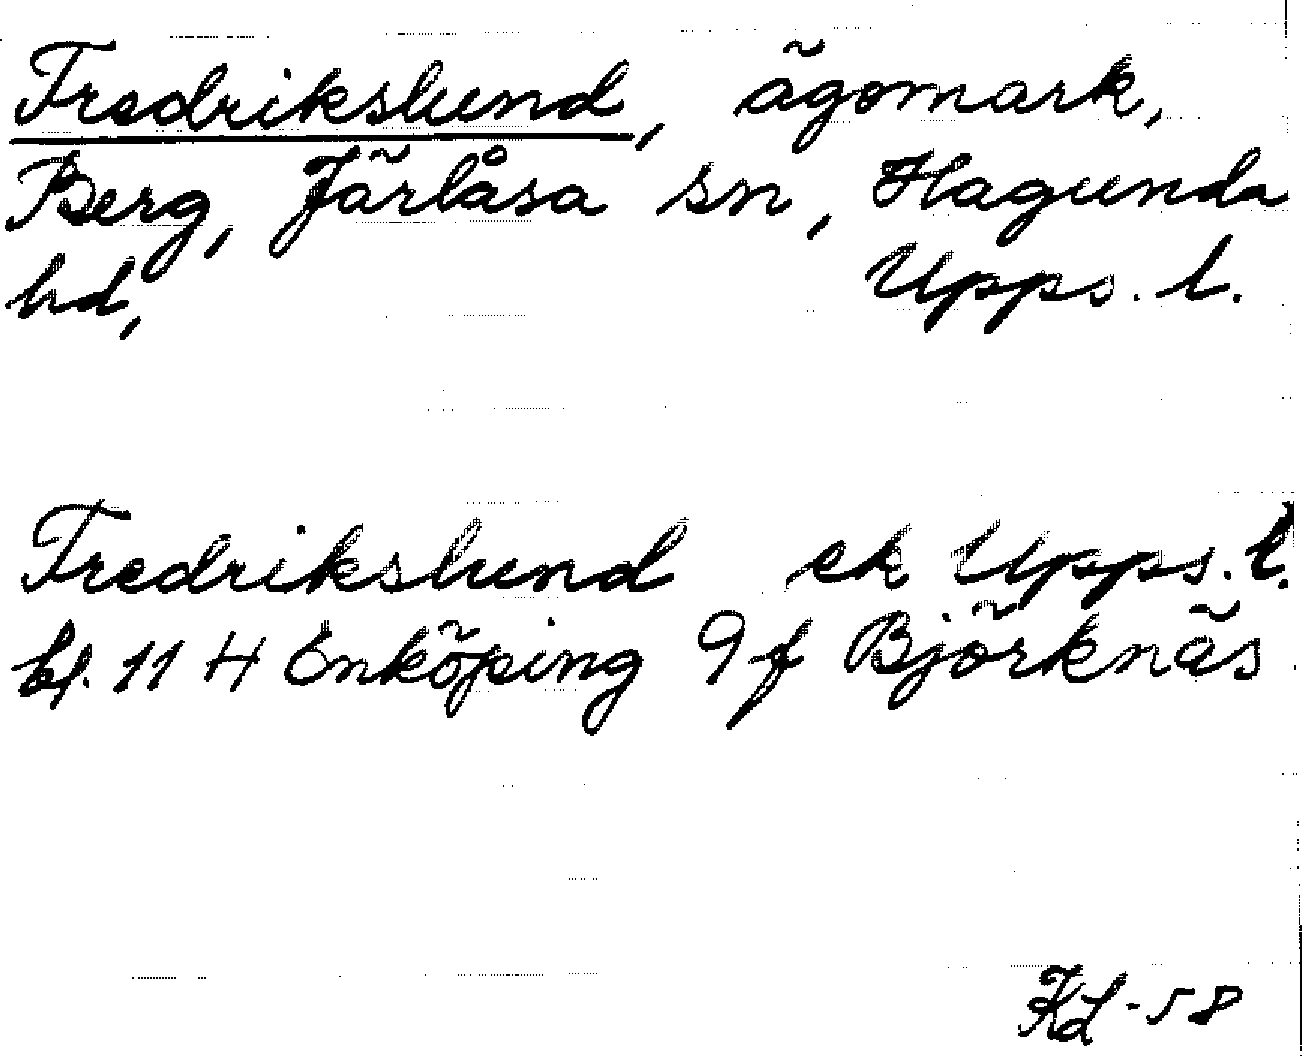 Fredrikslund, ägomark,
Berg, Järlåsa sn, Hagunda
hd, Upps. l.
Fredrikslund ek Upps. l.
bl. 11 H Enköping 9 f Björknäs
KL-58